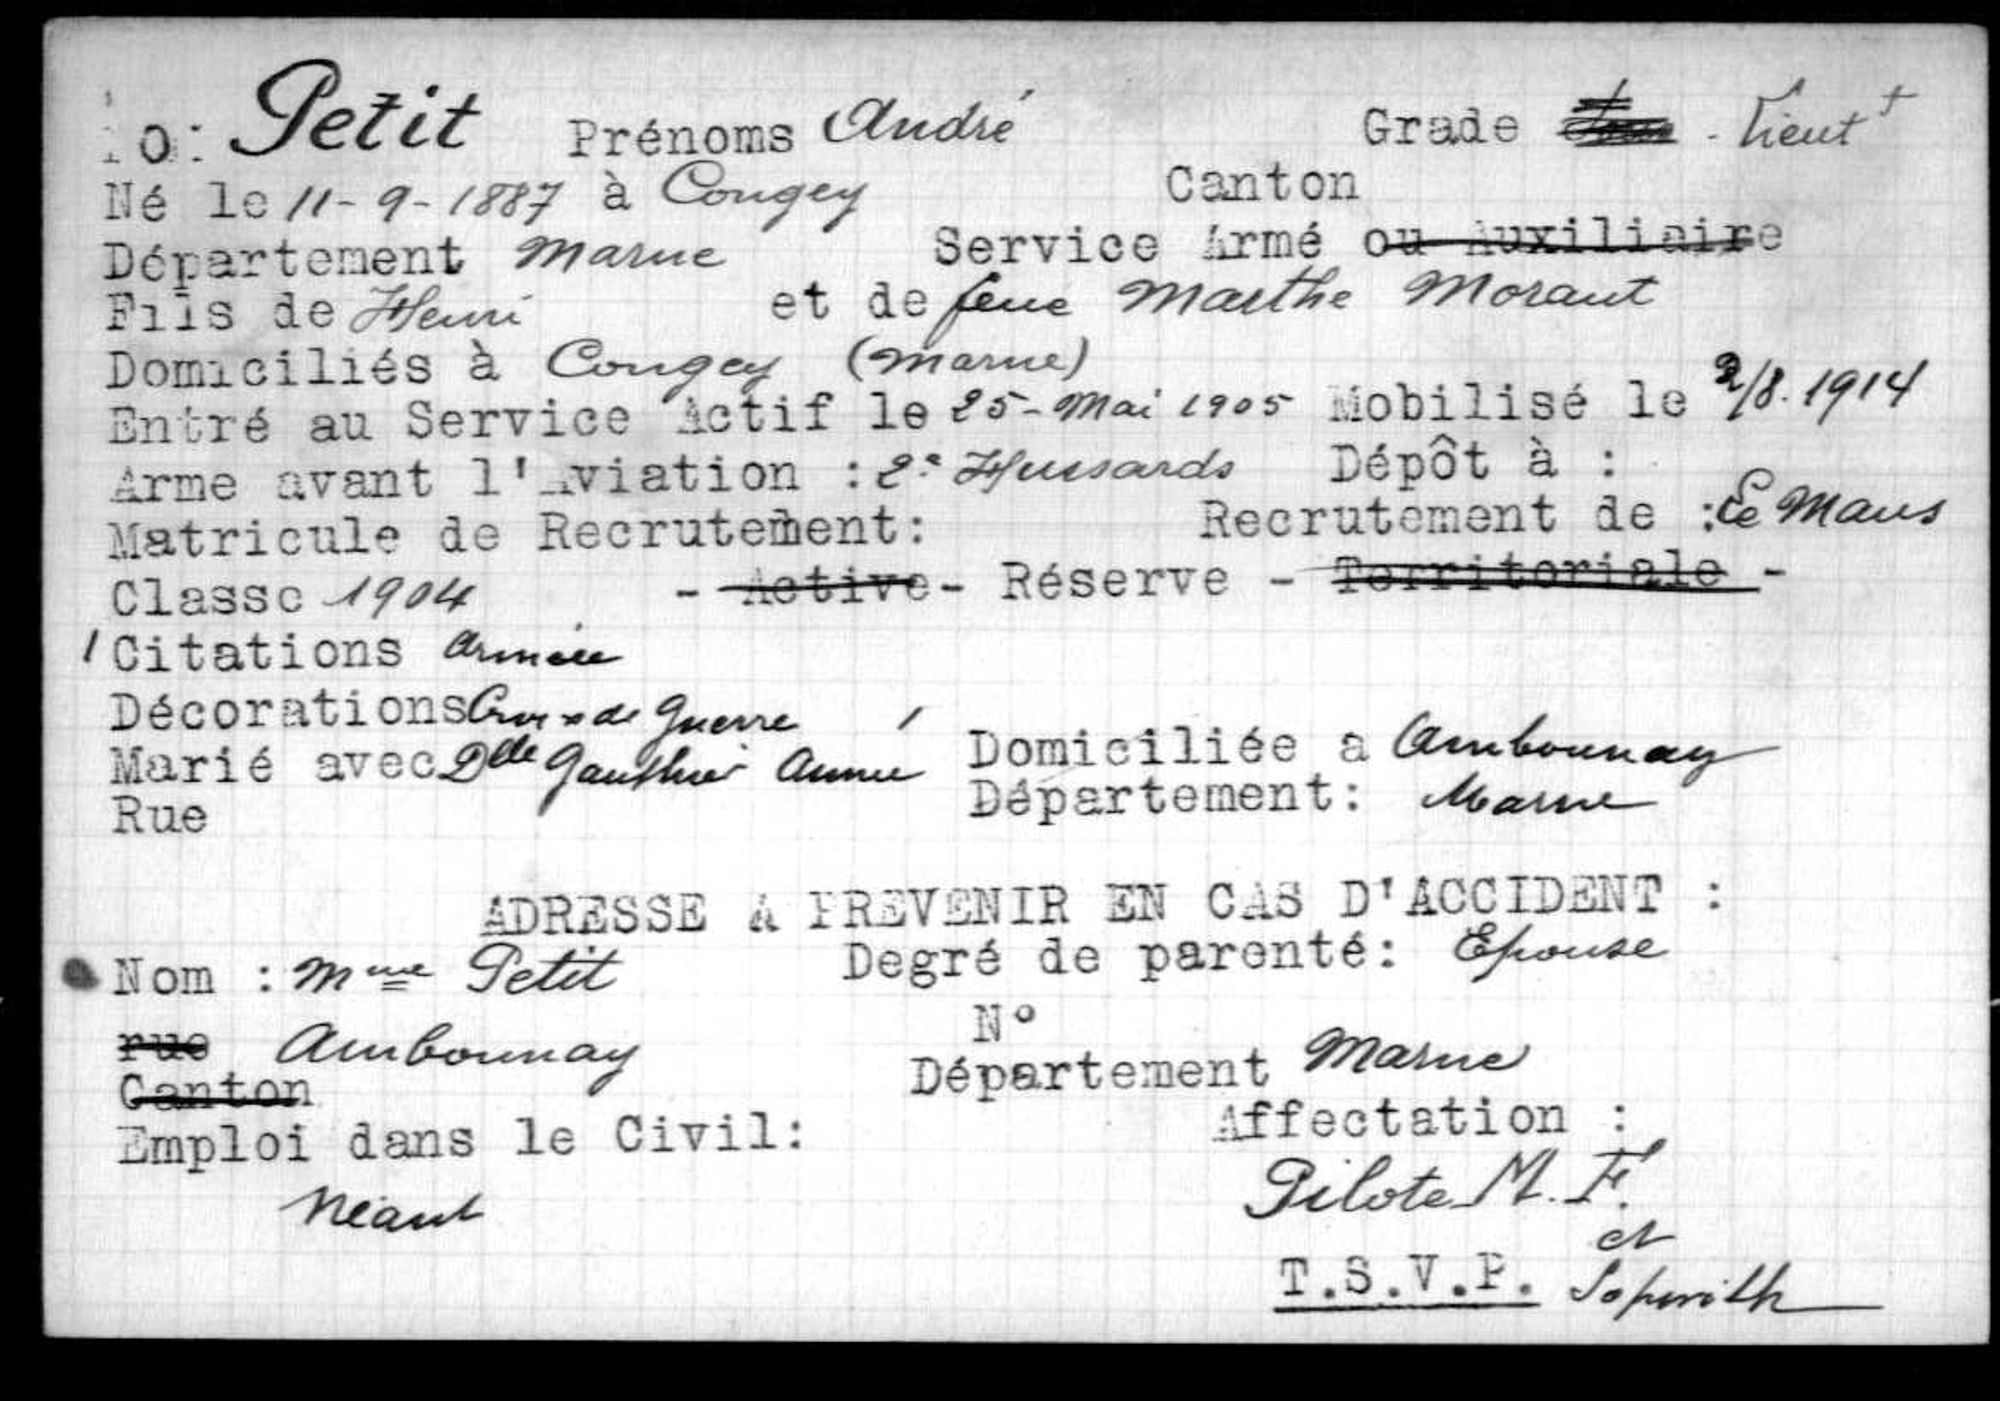 Petit Prénoms André Grade Lieut^t
Né le 11-9-1887 à Congey Canton
Département Marne Service Armé ou Auxiliaire
Fils de Henri et de feue Marthe Moraut
Domiciliés à Congey (Marne)
Entré au Service Actif le 25-Mai 1905 Mobilisé le 2/8.1914
Arme avant l'Aviation : 2e Hussards Dépôt à :
Matricule de Recrutement: Recrutement de : Le Mans
Classe 1904 - Active - Réserve - Territoriale -
1 Citations Armée
Décorations Croix de Guerre
Marié avec Dlle Gauthier Année Domiciliée a Ambonnay
Rue Département: Marne
ADRESSE A PREVENIR EN CAS D'ACCIDENT :
Nom : Mme Petit Degré de parenté: Epouse
N°
rue Ambonnay Département Marne
Canton
Emploi dans le Civil: Affectation :
Néant Pilote M. F.
et
T.S.V.P. Sopwith